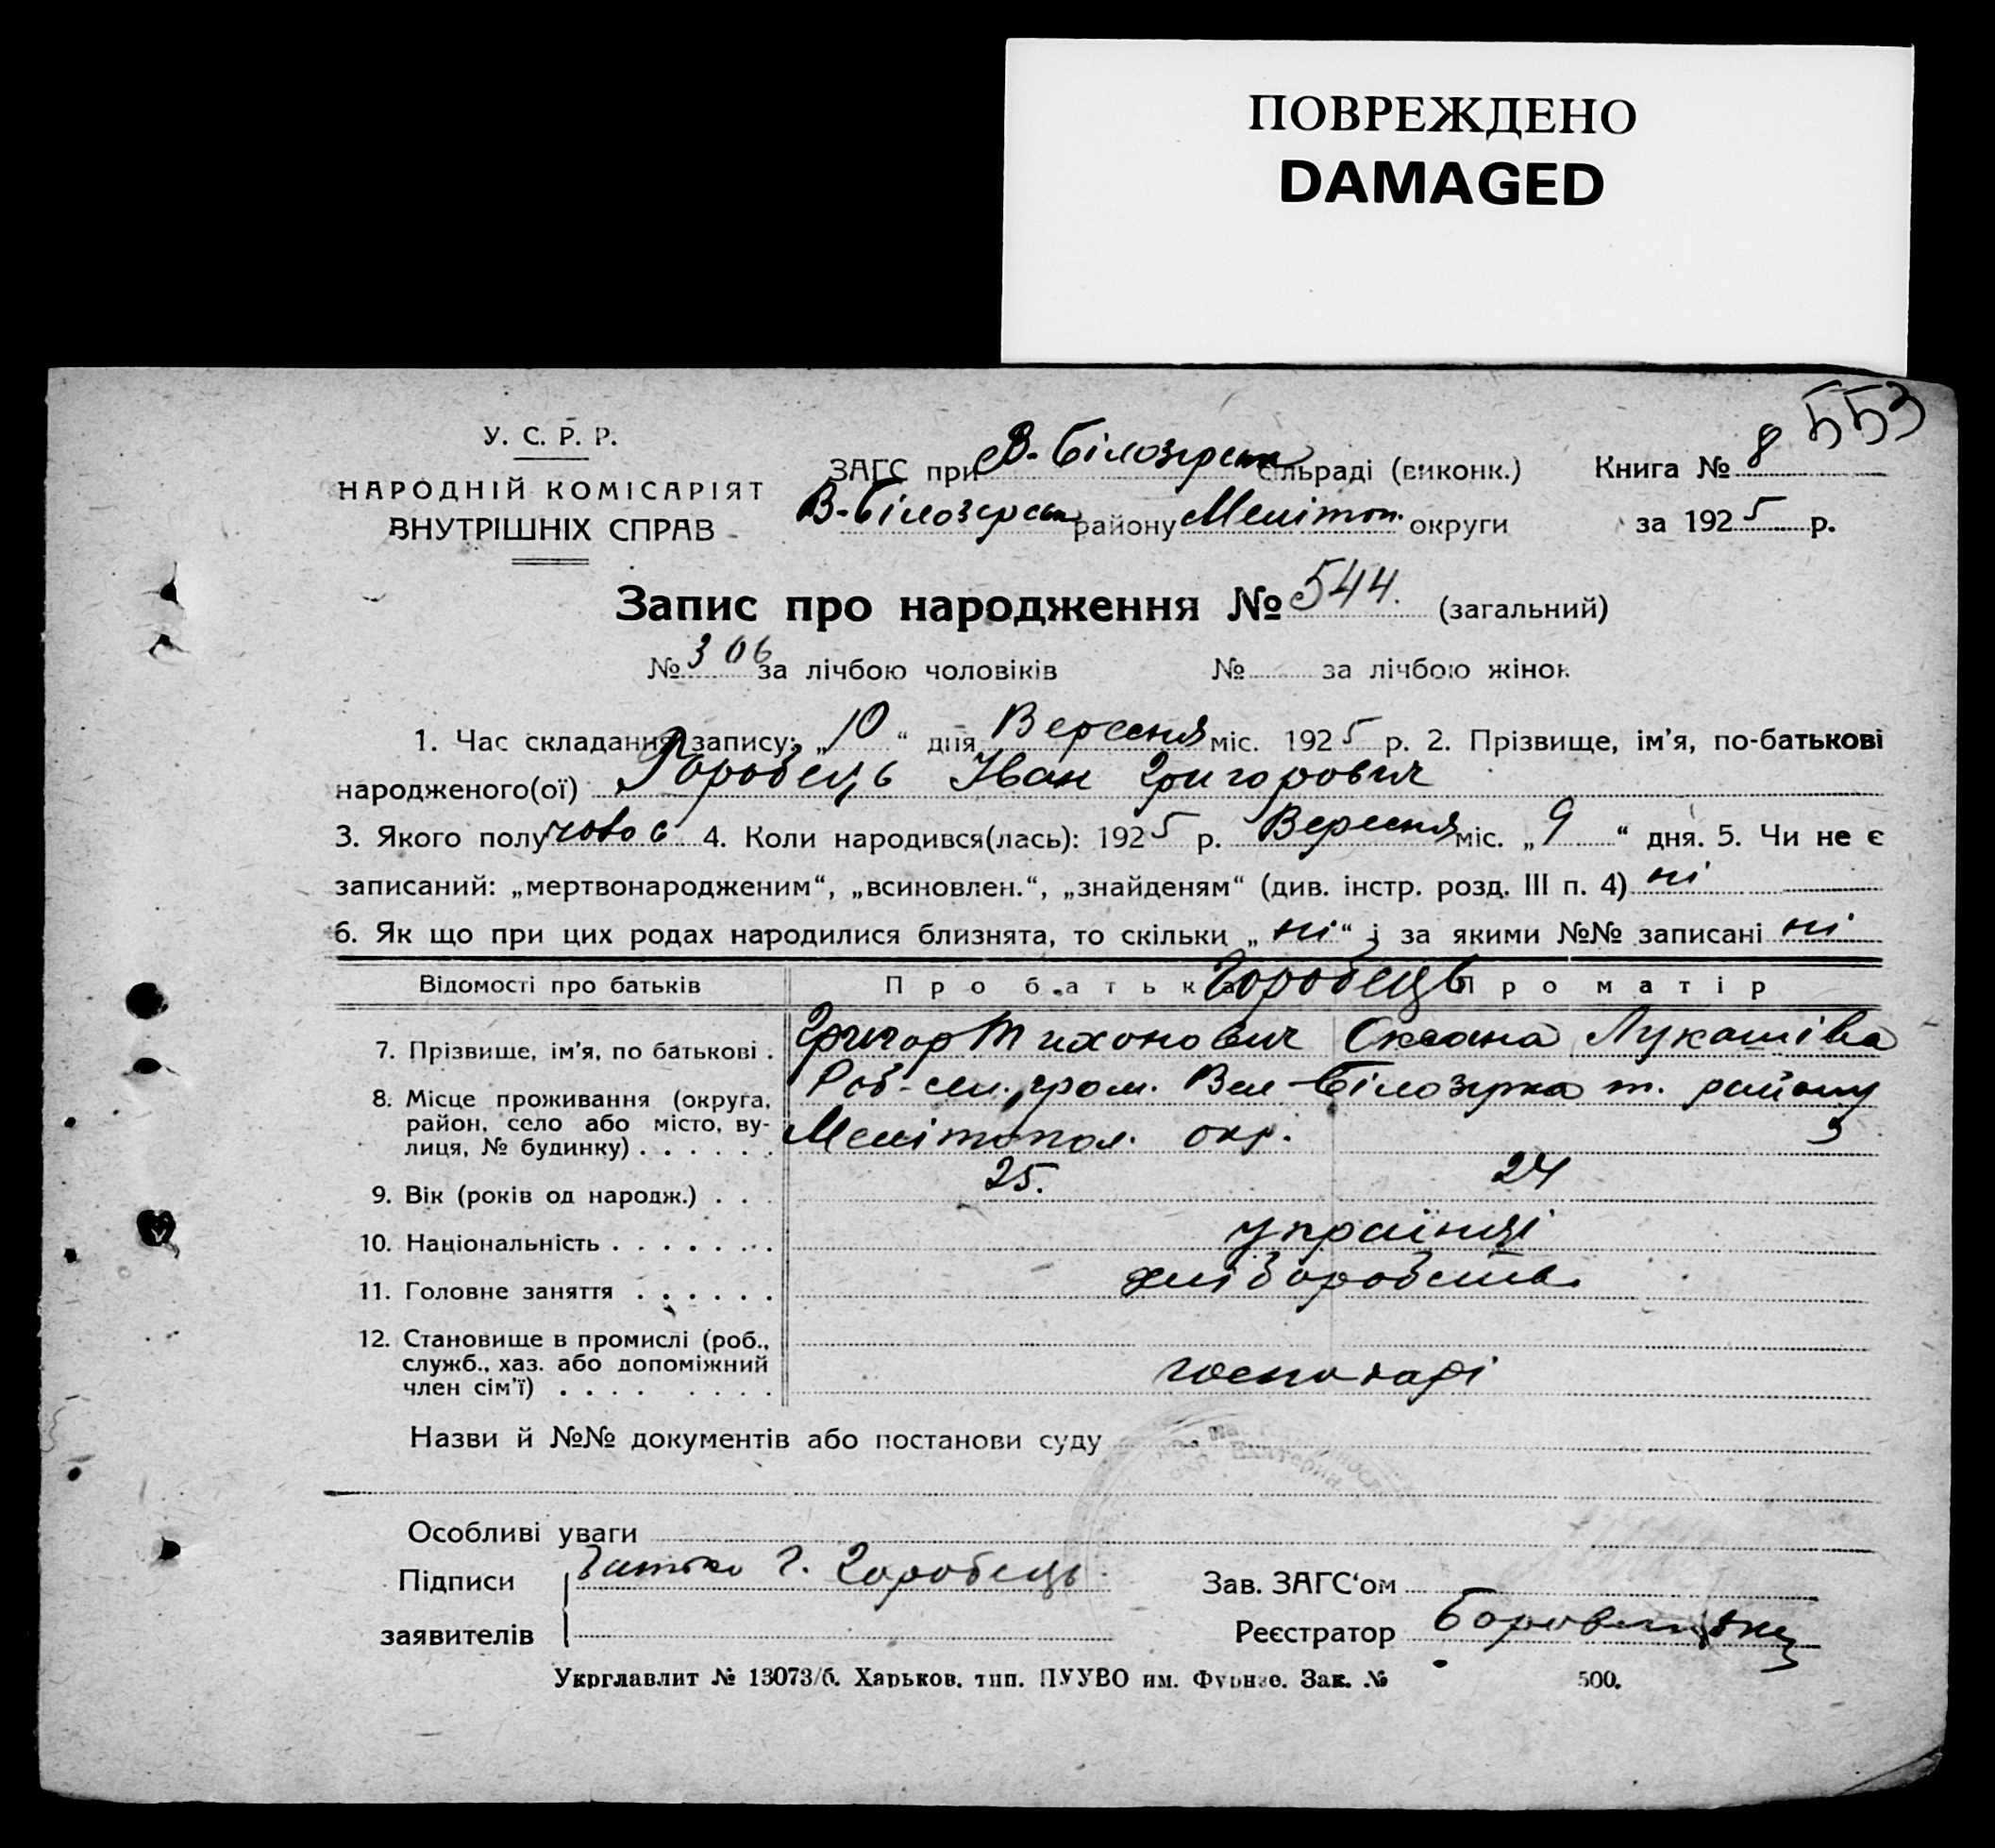 ПОВРЕЖДЕНО
DAMAGED
553
У. С. Р. Р.
НАРОДНІЙ КОМІСАРІЯТ
ВНУТРІШНІХ СПРАВ
ЗАГС при В-Білозерськ сільраді (виконк.) Книга № 8
В-Білозерськ району Мелітоп. округи за 1925 р.
Запис про народження № 544. (загальний)
№ 306 за лічбою чоловіків № за лічбою жінок
1. Час складання запису: „10“ дня Вересня міс. 1925 р. 2. Прізвище, ім’я, по-батькові
народженого(ої) Горобець Іван Григорович
3. Якого полу чолов 4. Коли народився(лась): 1925 р. Вересня міс. „9“ дня. 5. Чи не є
записаний: „мертвонародженим“, „всиновлен.“, „знайденям“ (див. інстр. розд. III п. 4) ні
6. Як що при цих родах народилися близнята, то скільки „ні“ і за якими №№ записані ні
Відомості про батьків Про батька Горобець Про матір
7. Прізвище, ім’я, по батькові . Григор Тихонович Оксана Лукашівна
8. Місце проживання (округа, район, село або місто, вулиця, № будинку) . . . . . . гром. Вел Білозерка т. району
Мелітопол. окр.
9. Вік (років од народж.) . . . 25. 24
10. Національність . . . . . . . . українці
11. Головне заняття . . . . . . хліборобств.
12. Становище в промислі (роб., служб., хаз. або допоміжний член сім’ї) . . . . . . . . господарі
Назви й №№ документів або постанови суду
Особливі уваги
Підписи Батько Г. Горобець Зав. ЗАГС‘ом
заявителів Реєстратор
Укрглавлит № 13073/б. Харьков. тип. ПУУВО им. Фрунзе. Зак. № 500.